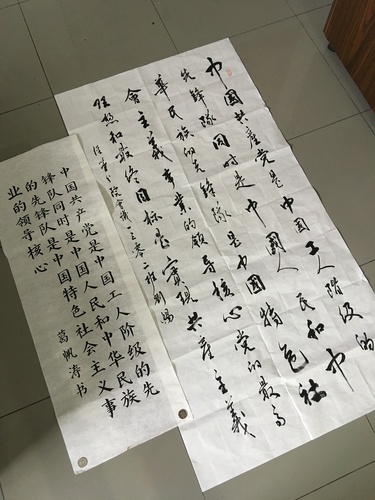 中国共産党是中国工人阶级的
先鋒隊同时是中國人民和中
華民族的先鋒隊是中國特色社
會主義事業的领导核心党的最高
理想和最终目标是實現共產主義
二班刘
中国共产党是中国工人阶级的先
锋队同时是中国人民和中华民族
的先锋队是中国特色社会主义事
业的领导核心
葛帆涛书